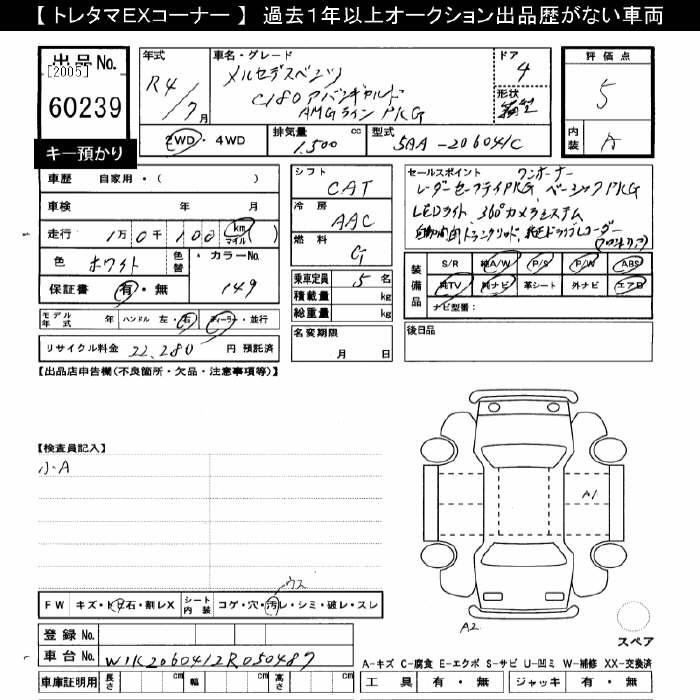 【 トレタマEXコーナー 】 過去１年以上オークション出品歴がない車両
出品 No.
[2005]
60239
キー預かり
年式
R4/7月
車名・グレード
メルセデスベンツ
C180 アバンギャルド
AMGライン PKG
ドア
4
形状
評価点
5
内装
A
2WD ・ 4WD
排気量 1,500 cc
型式 5AA-206041C
車歴 自家用・( )
車検 年 月
走行 1万0千100 km マイル
色 ホワイト 色替
カラーNo. 149
保証書 有・無
モデル年式 年 ハンドル 左・右 ディーラー・並行
リサイクル料金 22,280 円 預託済
シフト
CAT
冷房
AAC
燃料
G
乗車定員 5 名
積載量 kg
総重量 kg
名変期限
月 日
セールスポイント ワンオーナー
レーダーセーフティPKG ベーシックPKG
LEDライト 360°カメラシステム
自動開閉トランクリッド、純正ドライブレコーダー
装備品
S/R 純A/W P/S P/W ABS
純TV 純ナビ 革シート 外ナビ エアB
ナビ型番：
後日品
【出品店申告欄(不良箇所・欠品・注意事項等)】
【検査員記入】
小A
A1
A2
スペア
ウス
FW キズ・ト石・割レX シート内装 コゲ・穴・汚レ・シミ・破レ・スレ
登録 No.
車台 No. W1K2060412R050487
車庫証明用 長さ cm 幅 cm 高さ cm
A-キズ C-腐食 E-エクボ S-サビ U-凹ミ W-補修 XX-交換済
工具 有・無 ジャッキ 有・無